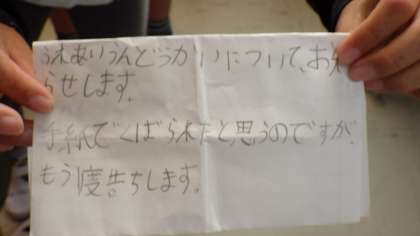 ふれあいうんどうかいについて、お知
らせします。
手紙でくばられたと思うのですが、
もう1度告ちします。